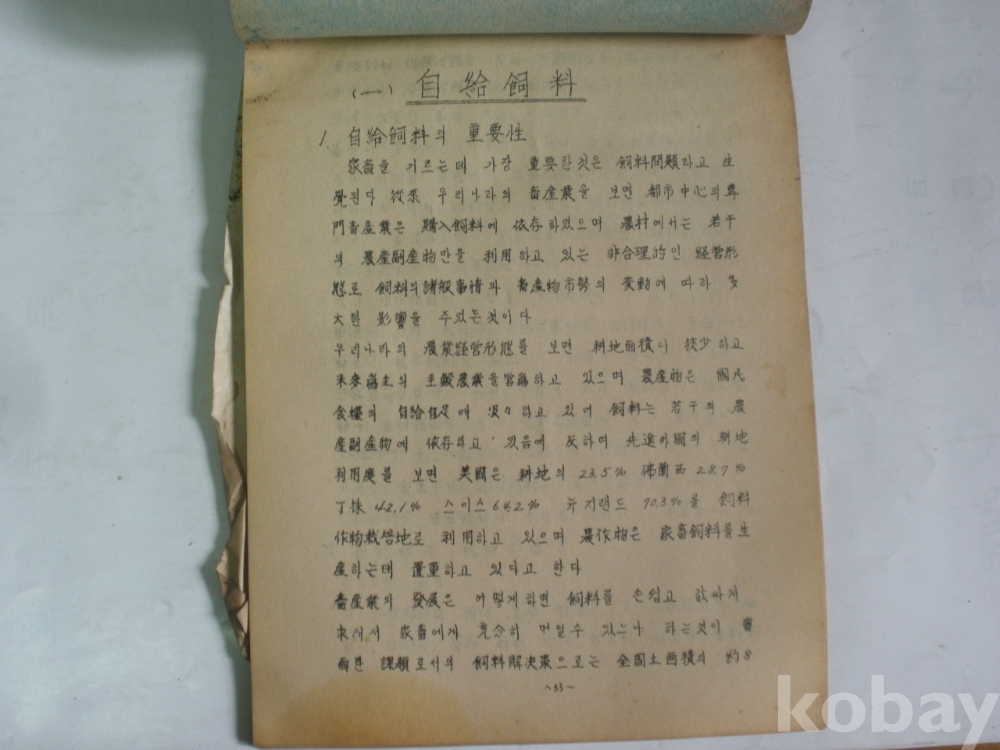 (一) 自給飼料
1. 自給飼料의 重要性
家畜을 기르는데 가장 重要한것은 飼料問題라고 生
覺된다 從來 우리나라의 畜産業을 보면 都市中心의 專
門畜産業은 購入飼料에 依存하였으며 農村에서는 若干
의 農産副産物만을 利用하고 있는 非合理的인 経営形
態로 飼料의 諸般事情과 畜産物市勢의 変動에 따라 多
大한 影響을 주었든것이다
우리나라의 農業経営形態를 보면 耕地面積이 狹少하고
米麥爲主의 主穀農業을 営爲하고 있으며 農産物은 國民
食糧의 自給自足에 하고 있어 飼料는 若干의 農
産副産物에 依存하고 있음에 反하여 先進外國의 耕地
利用度를 보면 美國은 耕地의 23.5% 佛蘭西 28.7%
丁抹 42.1% 스이스 64.2% 뉴지랜드 90.3%를 飼料
作物栽培地로 利用하고 있으며 農作物은 家畜飼料를 生
産하는데 置重하고 있다고 한다
畜産業의 發展은 어떻게하면 飼料를 손쉽고 값싸게
求해서 家畜에게 充分히 먹일수 있는나 하는것이 當
面한 課題로서의 飼料解決策으로는 全國土面積의 約8
~33~
kobay